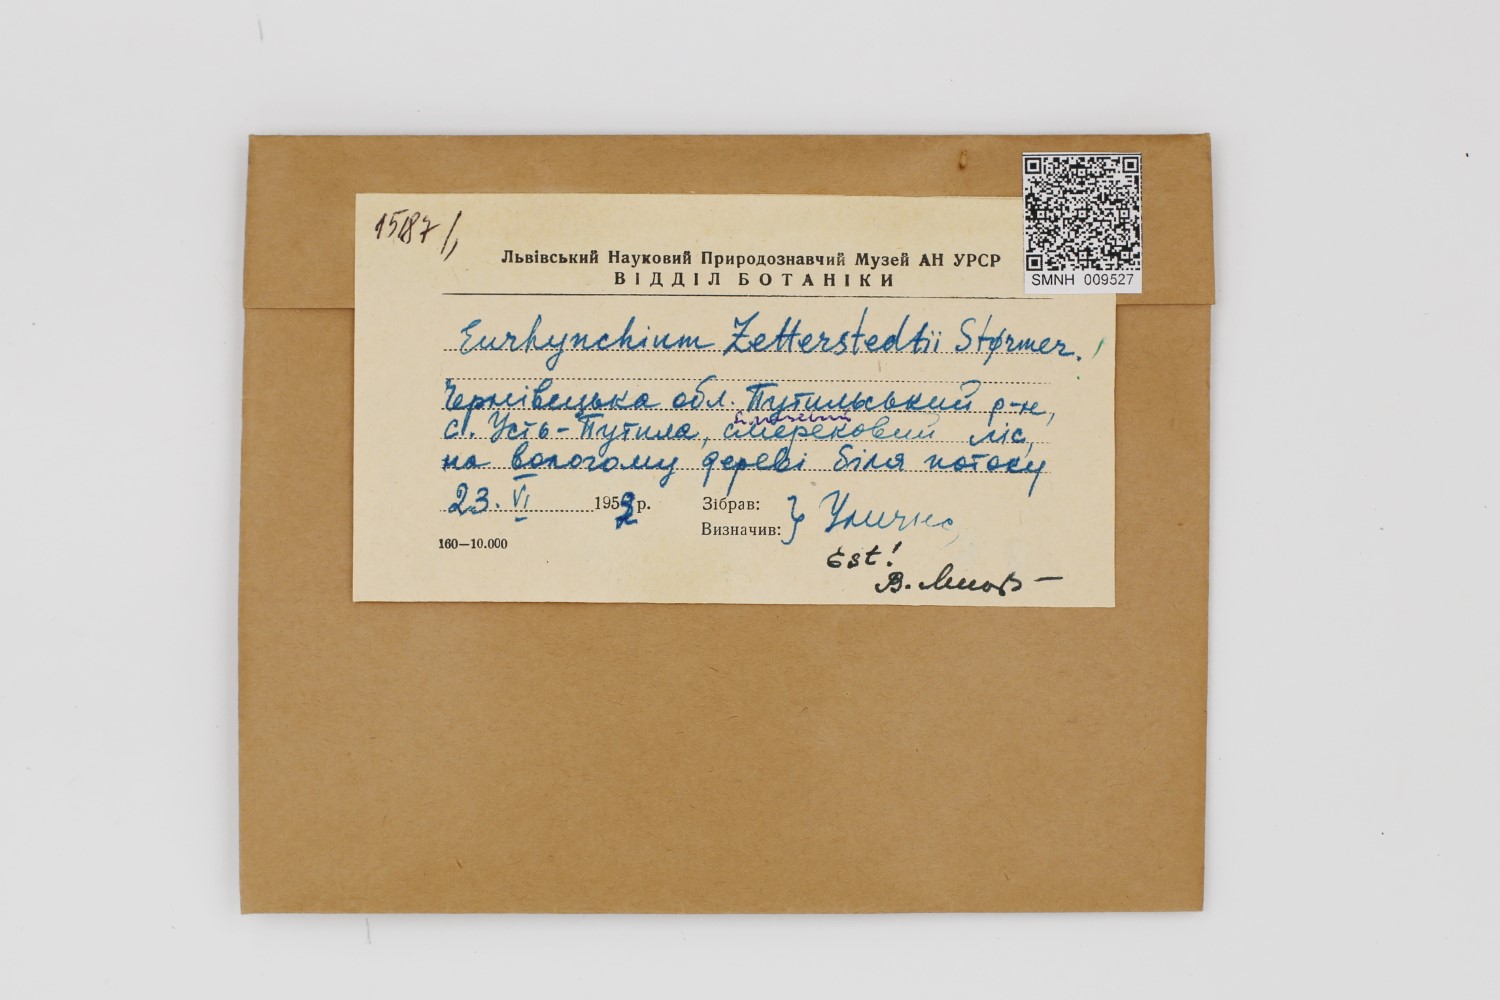 15187/,
Львівський Науковий Природознавчий Музей АН УРСР
ВІДДІЛ БОТАНІКИ
SMNH 009527
Eurhynchium Zetterstedtii Størmer.
Чернівецька обл. Путильський р-н,
с. Усть-Путила, смерековий ліс,
на вологому дереві біля потоку
23. VI 1952 р. Зібрав:
Визначив: } Улична
160—10.000
Est!
В.